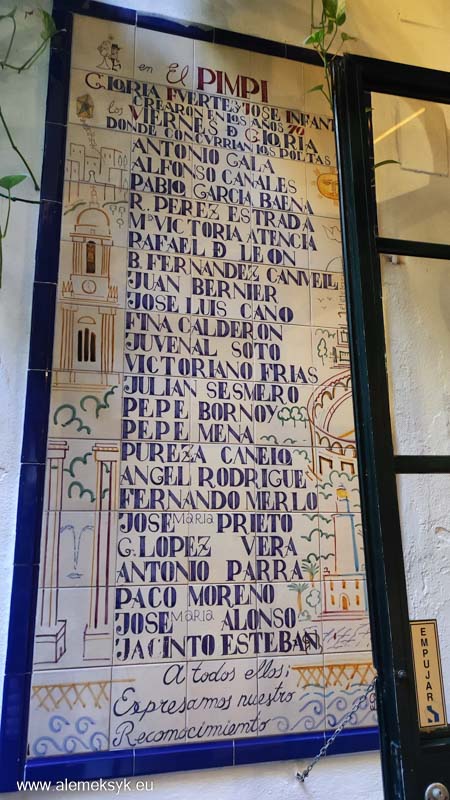 en El PIMPI
GLORIA FUERTES y JOSE INFANT
CREARON EN LOS AÑOS 70
los VIERNES Đ GLORIA
DONDE CONCVRRIAN LOS POETAS
ANTONIO GALA
ALFONSO CANALES
PABLO GARCIA BAENA
R. PEREZ ESTRADA
Mª VICTORIA ATENCIA
RAFAEL Đ LEON
B. FERNANDEZ CANIVELL
JUAN BERNIER
JOSE LUIS CANO
FINA CALDERON
JUVENAL SOTO
VICTORIANO FRIAS
JULIAN SESMERO
PEPE BORNOY
PEPE MENA
PUREZA CANELO
ANGEL RODRIGUE
FERNANDO MERLO
JOSE MARIA PRIETO
G. LOPEZ VERA
ANTONIO PARRA
PACO MORENO
JOSE MARIA ALONSO
JACINTO ESTEBAN
A todos ellos;
Expresamos nuestro
Reconocimiento
EMPUJAR
www.alemeksyk.eu